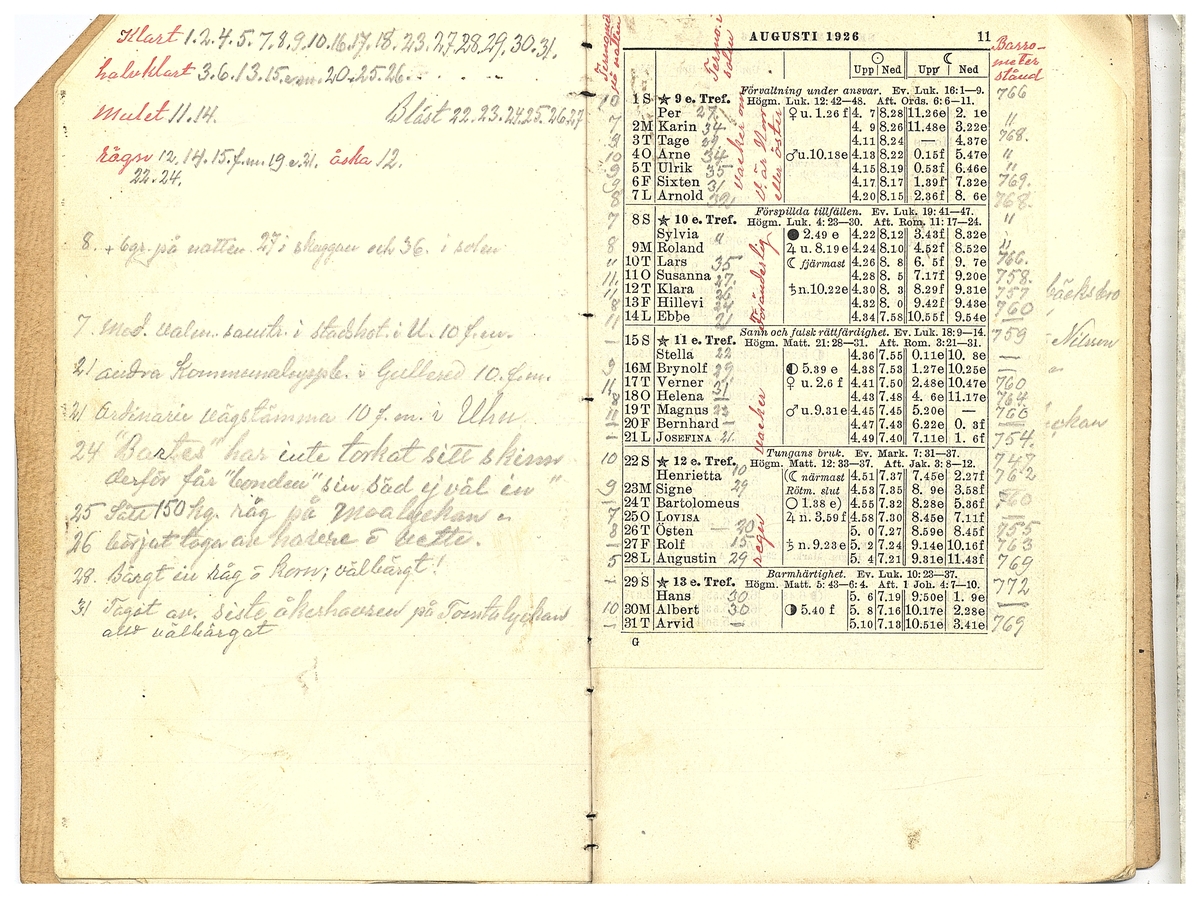 Klart 1.2.4.5.7.8.9.10.16.17.18.23.27.28.29.30.31.
halvklart 3.6.13.15.e.m.20.25.26.
Mulet 11.14. Blåst 22.23.24.25.26.27
rägn 12.14.15.f.m.19 e.21. åska 12.
22.24.
8. + 6gr. på natten. 27 i skuggan och 36. i solen
7. Mod. valm. samtr. i stadshot. i U. 10 f.m.
21 andra Kommunal i Gullered 10.f.m.
21 Ordinarie vägstämma 10 f.m. i Uhn
24 "Bartes" har inte torkat sitt skinn
derför får "bonden" sin säd ej väl in"
25 Satt 150 kg. råg på Moalyckan
26 börjat taga av havere o vette.
28. Bärgt in råg o korn; välbärgt!
31 Tagit av siste åkerhavren på Tomtalyckan
allt välbärgat
AUGUSTI 1926 11
Barro-
meter
stånd
Upp Ned Upp Ned
Förvaltning under ansvar. Ev. Luk. 16:1—9.
1 S ★ 9 e. Tref. Högm. Luk. 12:42—48. Aft. Ords. 6:6—11. 766
Per 27 ♀ u. 1.26 f 4. 7 8.28 11.26e 2. 1e
2 M Karin 34 4. 9 8.26 11.48e 3.22e 768.
3 T Tage 4.11 8.24 — 4.37e
4 O Arne 34 ♂ u.10.18e 4.13 8.22 0.15f 5.47e
5 T Ulrik 35 4.15 8.19 0.53f 6.46e
6 F Sixten 31 4.17 8.17 1.39f 7.32e 769.
7 L Arnold 4.20 8.15 2.36f 8. 6e 768.
Förspillda tillfällen. Ev. Luk. 19:41—47.
8 S ★ 10 e. Tref. Högm. Luk. 4:23—30. Aft. Rom. 11:17—24.
Sylvia " ● 2.49 e 4.22 8.12 3.43f 8.32e
9 M Roland ♃ u. 8.19 e 4.24 8.10 4.52f 8.52e
10 T Lars 35 ☾ fjärmast 4.26 8. 8 6. 5f 9. 7e 766.
11 O Susanna 27 4.28 8. 5 7.17f 9.20e 758.
12 T Klara ♄ n.10.22e 4.30 8. 3 8.29f 9.31e 757
13 F Hillevi 24 4.32 8. 0 9.42f 9.43e 760
14 L Ebbe 21 4.34 7.58 10.55f 9.54e
Sann och falsk rättfärdighet. Ev. Luk. 18:9—14. 759
15 S ★ 11 e. Tref. Högm. Matt. 21:28—31. Aft. Rom. 3:21—31. Nilsson
Stella 22 4.36 7.55 0.11e 10. 8e
16 M Brynolf 29 ◐ 5.39 e 4.38 7.53 1.27e 10.25e
17 T Verner ♀ u. 2.6 f 4.41 7.50 2.48e 10.47e 760
18 O Helena 31 4.43 7.48 4. 6e 11.17e 764
19 T Magnus 23 ♂ u.9.31e 4.45 7.45 5.20e — 760
20 F Bernhard — 4.47 7.43 6.22e 0. 3f
21 L JOSEFINA 21 4.49 7.40 7.11e 1. 6f 754.
Tungans bruk. Ev. Mark. 7:31—37.
22 S ★ 12 e. Tref. Högm. Matt. 12:33—37. Aft. Jak. 3:8—12. 747
Henrietta 10 (☾ närmast 4.51 7.37 7.45e 2.27f 762
23 M Signe 29 Rötm. slut 4.53 7.35 8. 9e 3.58f
24 T Bartolomeus ○ 1.38 e) 4.55 7.32 8.28e 5.36f 760
25 O LOVISA ♃ n. 3.59 f 4.58 7.30 8.45e 7.11f
26 T Östen 20 5. 0 7.27 8.59e 8.45f 755
27 F Rolf 15 ♄ n. 9.23 e 5. 2 7.24 9.14e 10.16f 763
28 L Augustin 29 5. 4 7.21 9.31e 11.43f 769
Barmhärtighet. Ev. Luk. 10:23—37.
29 S ★ 13 e. Tref. Högm. Matt. 5:43—6:4. Aft. 1 Joh. 4:7—10. 772
Hans 30 5. 6 7.19 9.50e 1. 9e
30 M Albert 30 ◑ 5.40 f 5. 8 7.16 10.17e 2.28e
31 T Arvid — 5.10 7.13 10.51e 3.41e 769
G